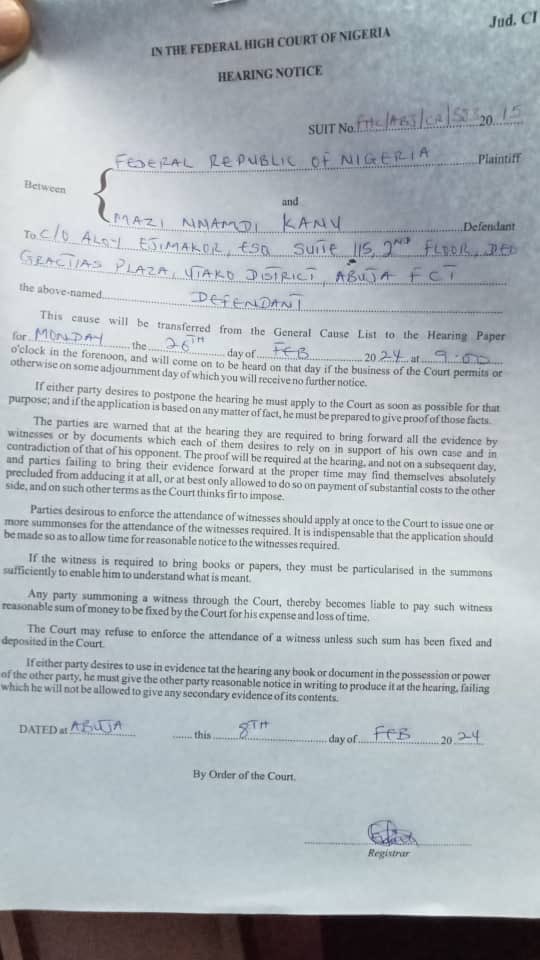 Jud. CI
IN THE FEDERAL HIGH COURT OF NIGERIA
HEARING NOTICE
SUIT No. FHC/ABJ/CR/ 20 15
FEDERAL REPUBLIC OF NIGERIA Plaintiff
Between
and
MAZI NNAMDI KANU Defendant
To C/O ALOY EJIMAKOR, ESQ SUITE 115, 2ND FLOOR, DEO
GRACTIAS PLAZA, UTAKO DISTRICT, ABUJA FCT
the above-named DEFENDANT
This cause will be transferred from the General Cause List to the Hearing Paper
for MONDAY the 26TH day of FEB 2024 at 9:00
o'clock in the forenoon, and will come on to be heard on that day if the business of the Court permits or
otherwise on some adjournment day of which you will receive no further notice.
If either party desires to postpone the hearing he must apply to the Court as soon as possible for that
purpose; and if the application is based on any matter of fact, he must be prepared to give proof of those facts.
The parties are warned that at the hearing they are required to bring forward all the evidence by
witnesses or by documents which each of them desires to rely on in support of his own case and in
contradiction of that of his opponent. The proof will be required at the hearing, and not on a subsequent day,
and parties failing to bring their evidence forward at the proper time may find themselves absolutely
precluded from adducing it at all, or at best only allowed to do so on payment of substantial costs to the other
side, and on such other terms as the Court thinks fir to impose.
Parties desirous to enforce the attendance of witnesses should apply at once to the Court to issue one or
more summonses for the attendance of the witnesses required. It is indispensable that the application should
be made so as to allow time for reasonable notice to the witnesses required.
If the witness is required to bring books or papers, they must be particularised in the summons
sufficiently to enable him to understand what is meant.
Any party summoning a witness through the Court, thereby becomes liable to pay such witness
reasonable sum of money to be fixed by the Court for his expense and loss of time.
The Court may refuse to enforce the attendance of a witness unless such sum has been fixed and
deposited in the Court.
If either party desires to use in evidence tat the hearing any book or document in the possession or power
of the other party, he must give the other party reasonable notice in writing to produce it at the hearing, failing
which he will not be allowed to give any secondary evidence of its contents.
DATED at ABUJA this 8TH day of FEB 2024
By Order of the Court.
Registrar